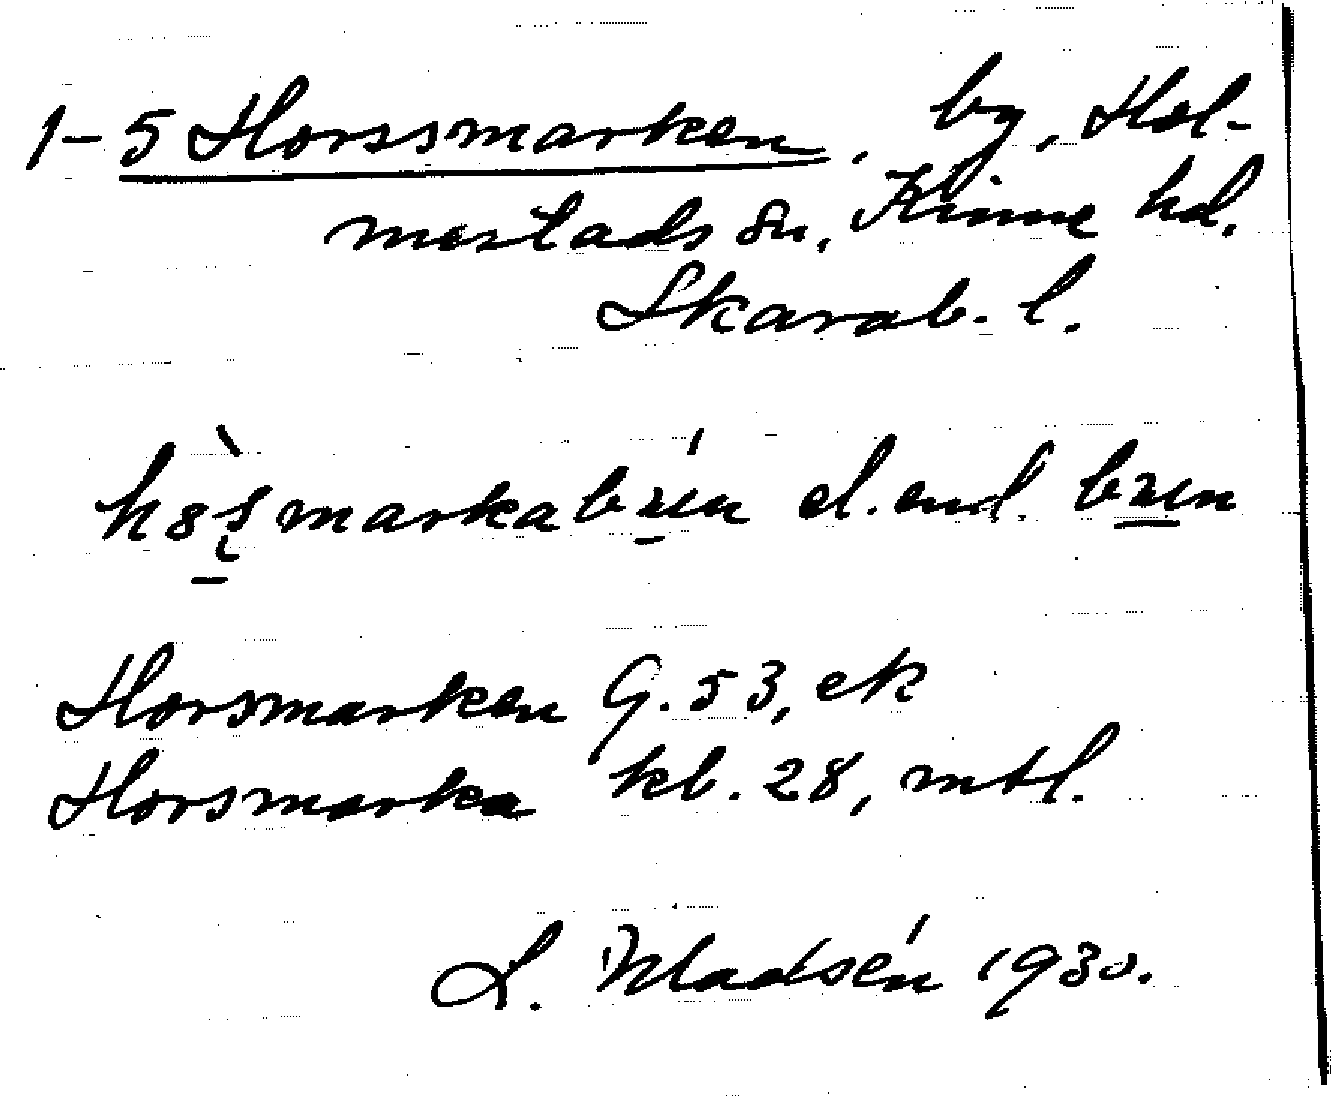 1-5 Horssmarken, by, Hol-
mestads sn, Kinne hd.
Skarab. l.
el. end.
Horsmarken G. 53, ek
Horsmarka kb. 28, mtl.
L. Madsén 1930.